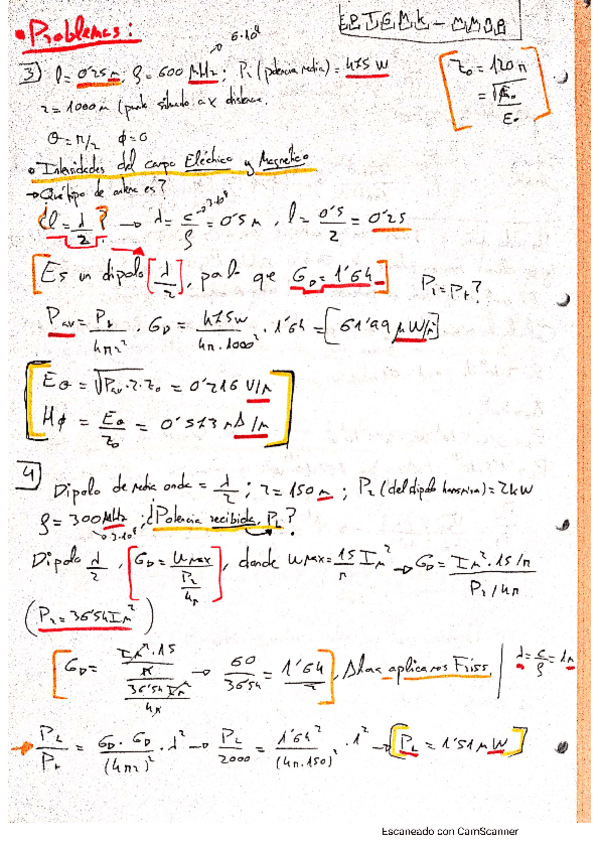 • Problemas:
6·10⁸
3) l = 0'25 m, f = 600 MHz; Pi (potencia media) = 475 W
Z₀ = 120π
r = 1000 m (punto situado a x distancia.
θ = π/2 φ = 0
• Intensidades del campo Eléctrico y Magnético
→ Qué tipo de antena es?
¿l = λ/2? → λ = c/f → 3·10⁸ = 0'5 m, l = 0'5/2 = 0'25
[Es un dipolo [λ/2], por lo que G_D = 1'64]
Pi = Pt?
Pav = Pt/4πr² · G_D = 475w/4π·1000² · 1'64 = [61'99 μW/m]
Eθ = √Pav·2·Z₀ = 0'216 V/m
Hφ = Eθ/Z₀ = 0'573 mA/m
4) Dipolo de media onda = λ/2; r = 150 m; Pr (del dipolo transmisor) = 2kW
f = 300 MHz; ¿Potencia recibida, PL?
→ 3·10⁸
Dipolo λ/2, [G_D = Umax / Pr/4π], donde Umax = 15/π Im² → G_D = Im²·15/π / Pr/4π
(Pr = 36'54 Im²)
[G_D = Im²·15/π / 36'54 Im²/4π → 60/36'54 = 1'64], Ahora aplicamos Friss. | λ = c/f = 1m
→ PL/Pt = G_D·G_D/(4πr)² · λ² → PL/2000 = 1'64²/(4π·150)² · 1² → [PL = 1'51 mW]
Escaneado con CamScanner